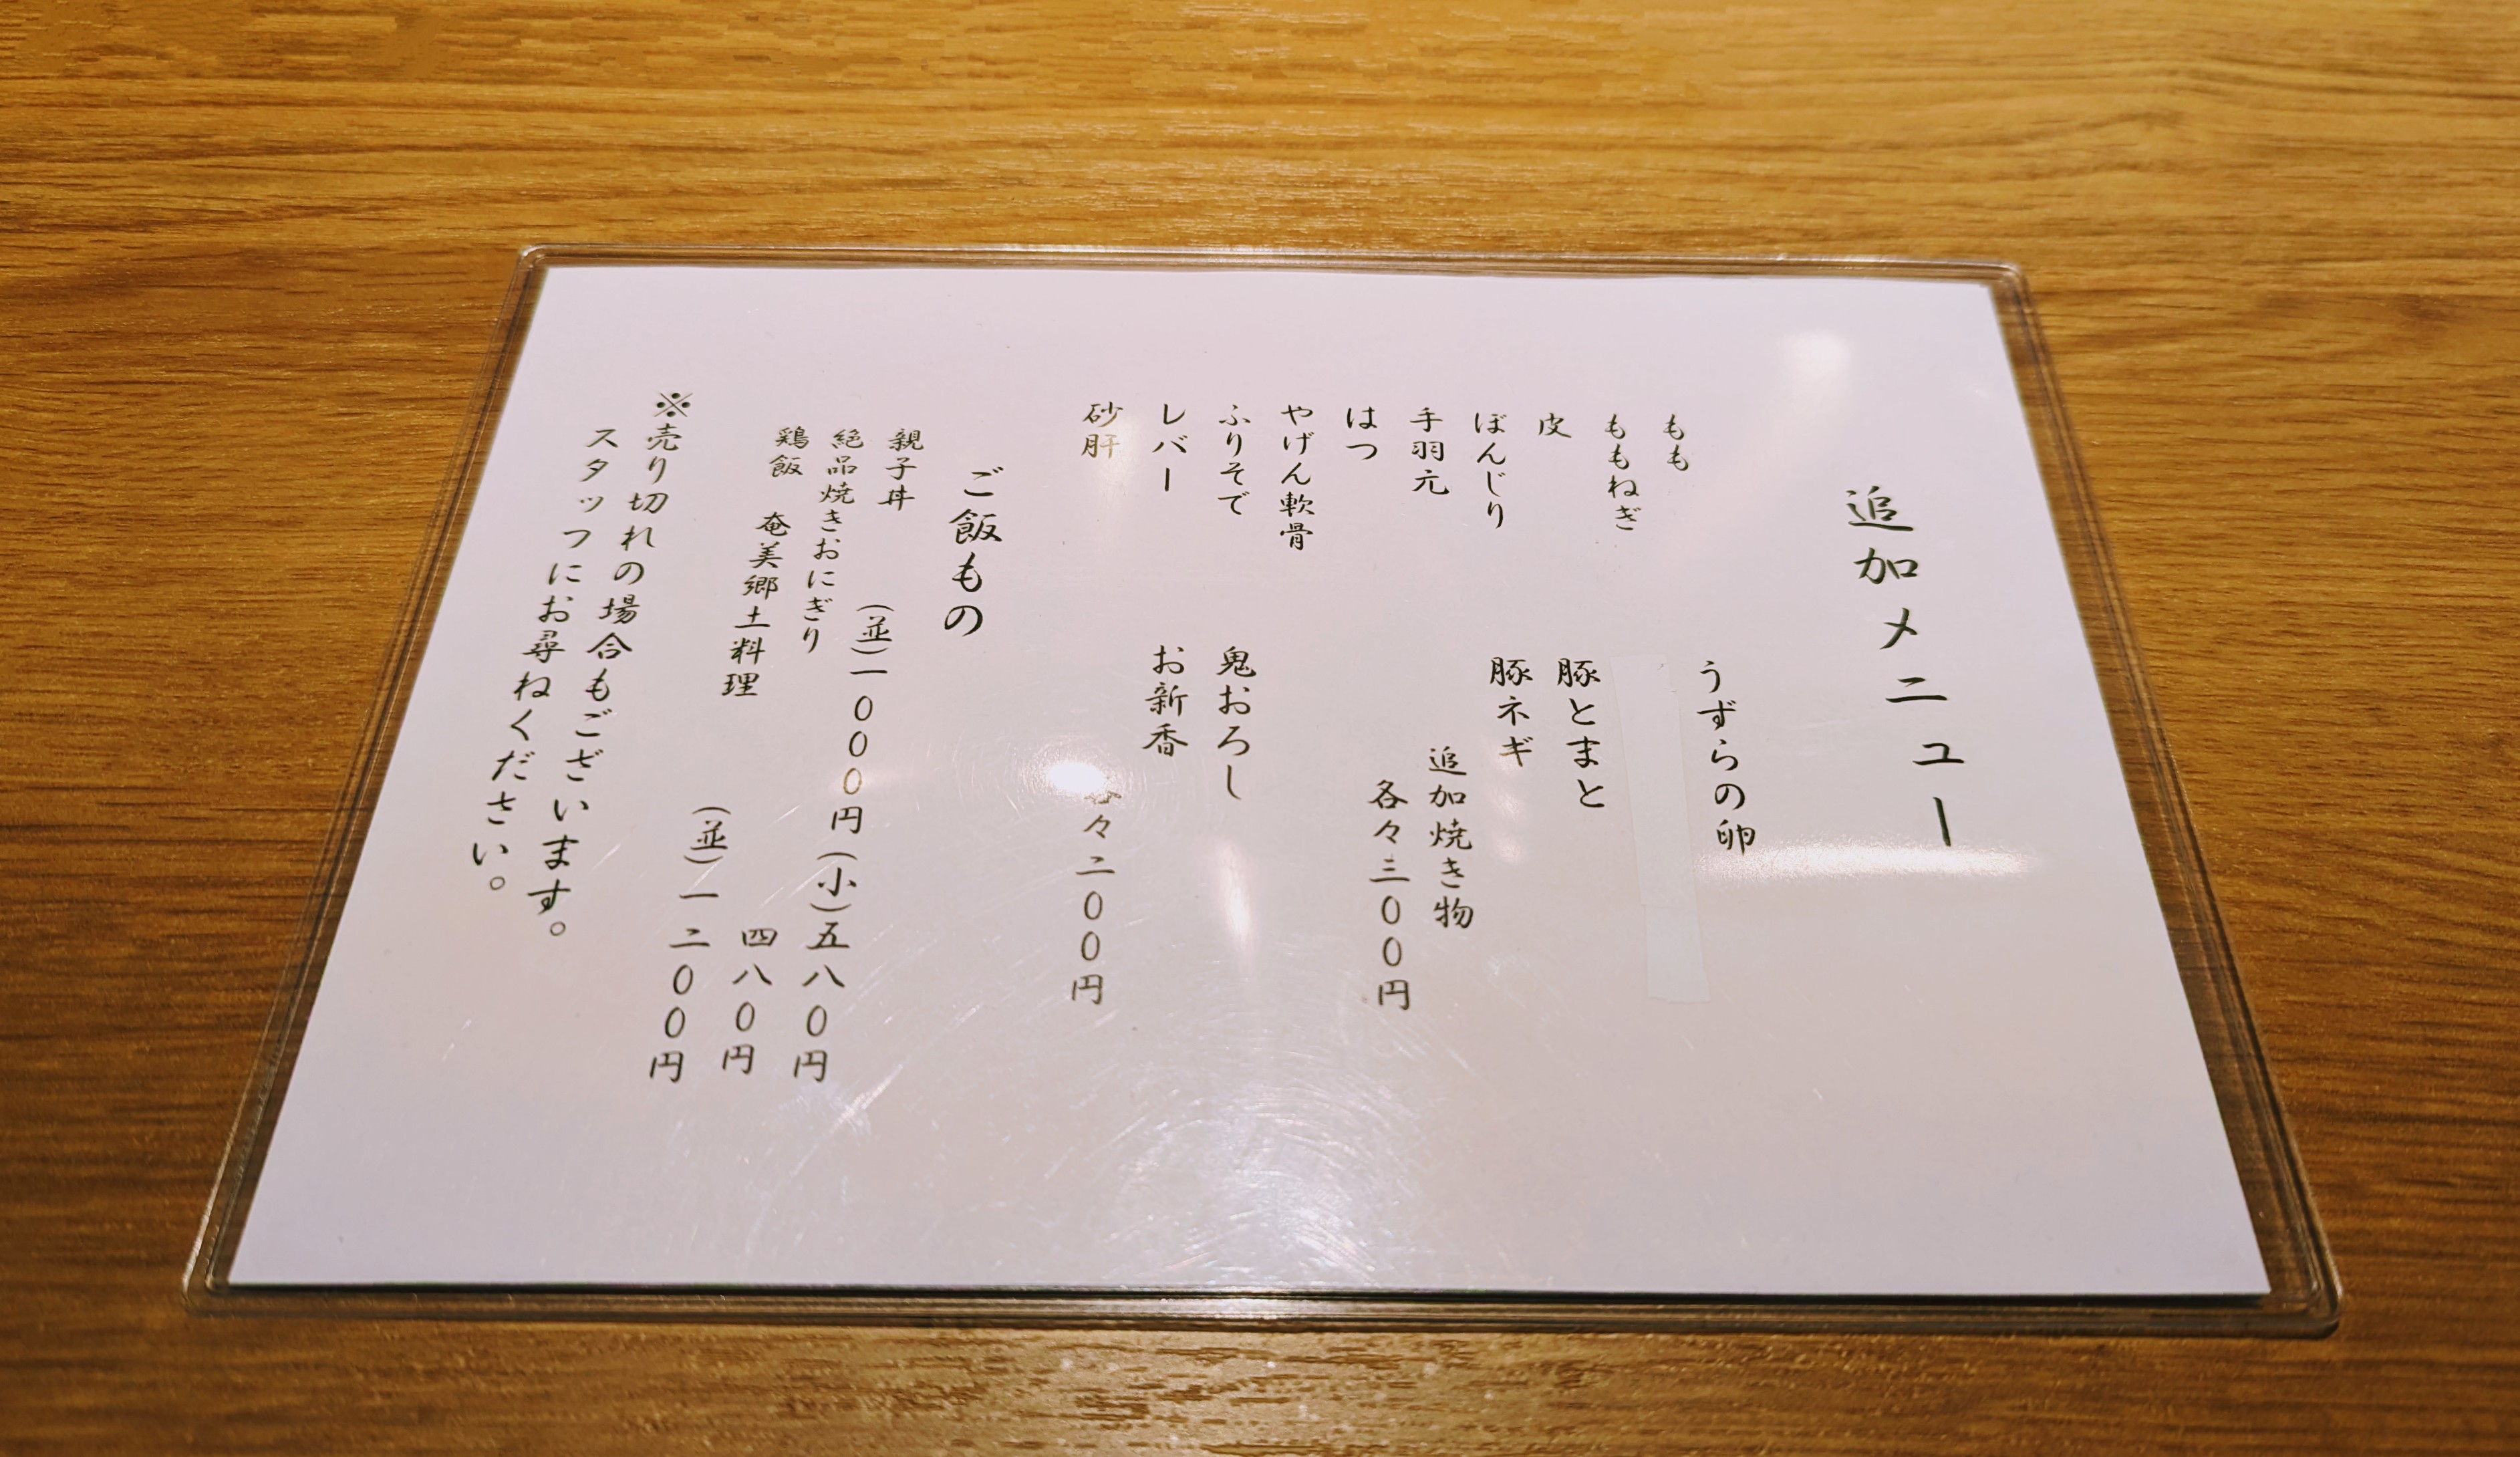 追加メニュー
もも
ももねぎ
皮
ぼんじり
手羽元
はつ
やげん軟骨
ふりそで
レバー
砂肝
うずらの卵
豚とまと
豚ネギ
追加焼き物
各々三００円
鬼おろし
お新香
各々二００円
ご飯もの
親子丼
(並)一０００円(小)五八０円
絶品焼きおにぎり
四八０円
鶏飯 奄美郷土料理
(並)一二００円
※売り切れの場合もございます。
スタッフにお尋ねください。